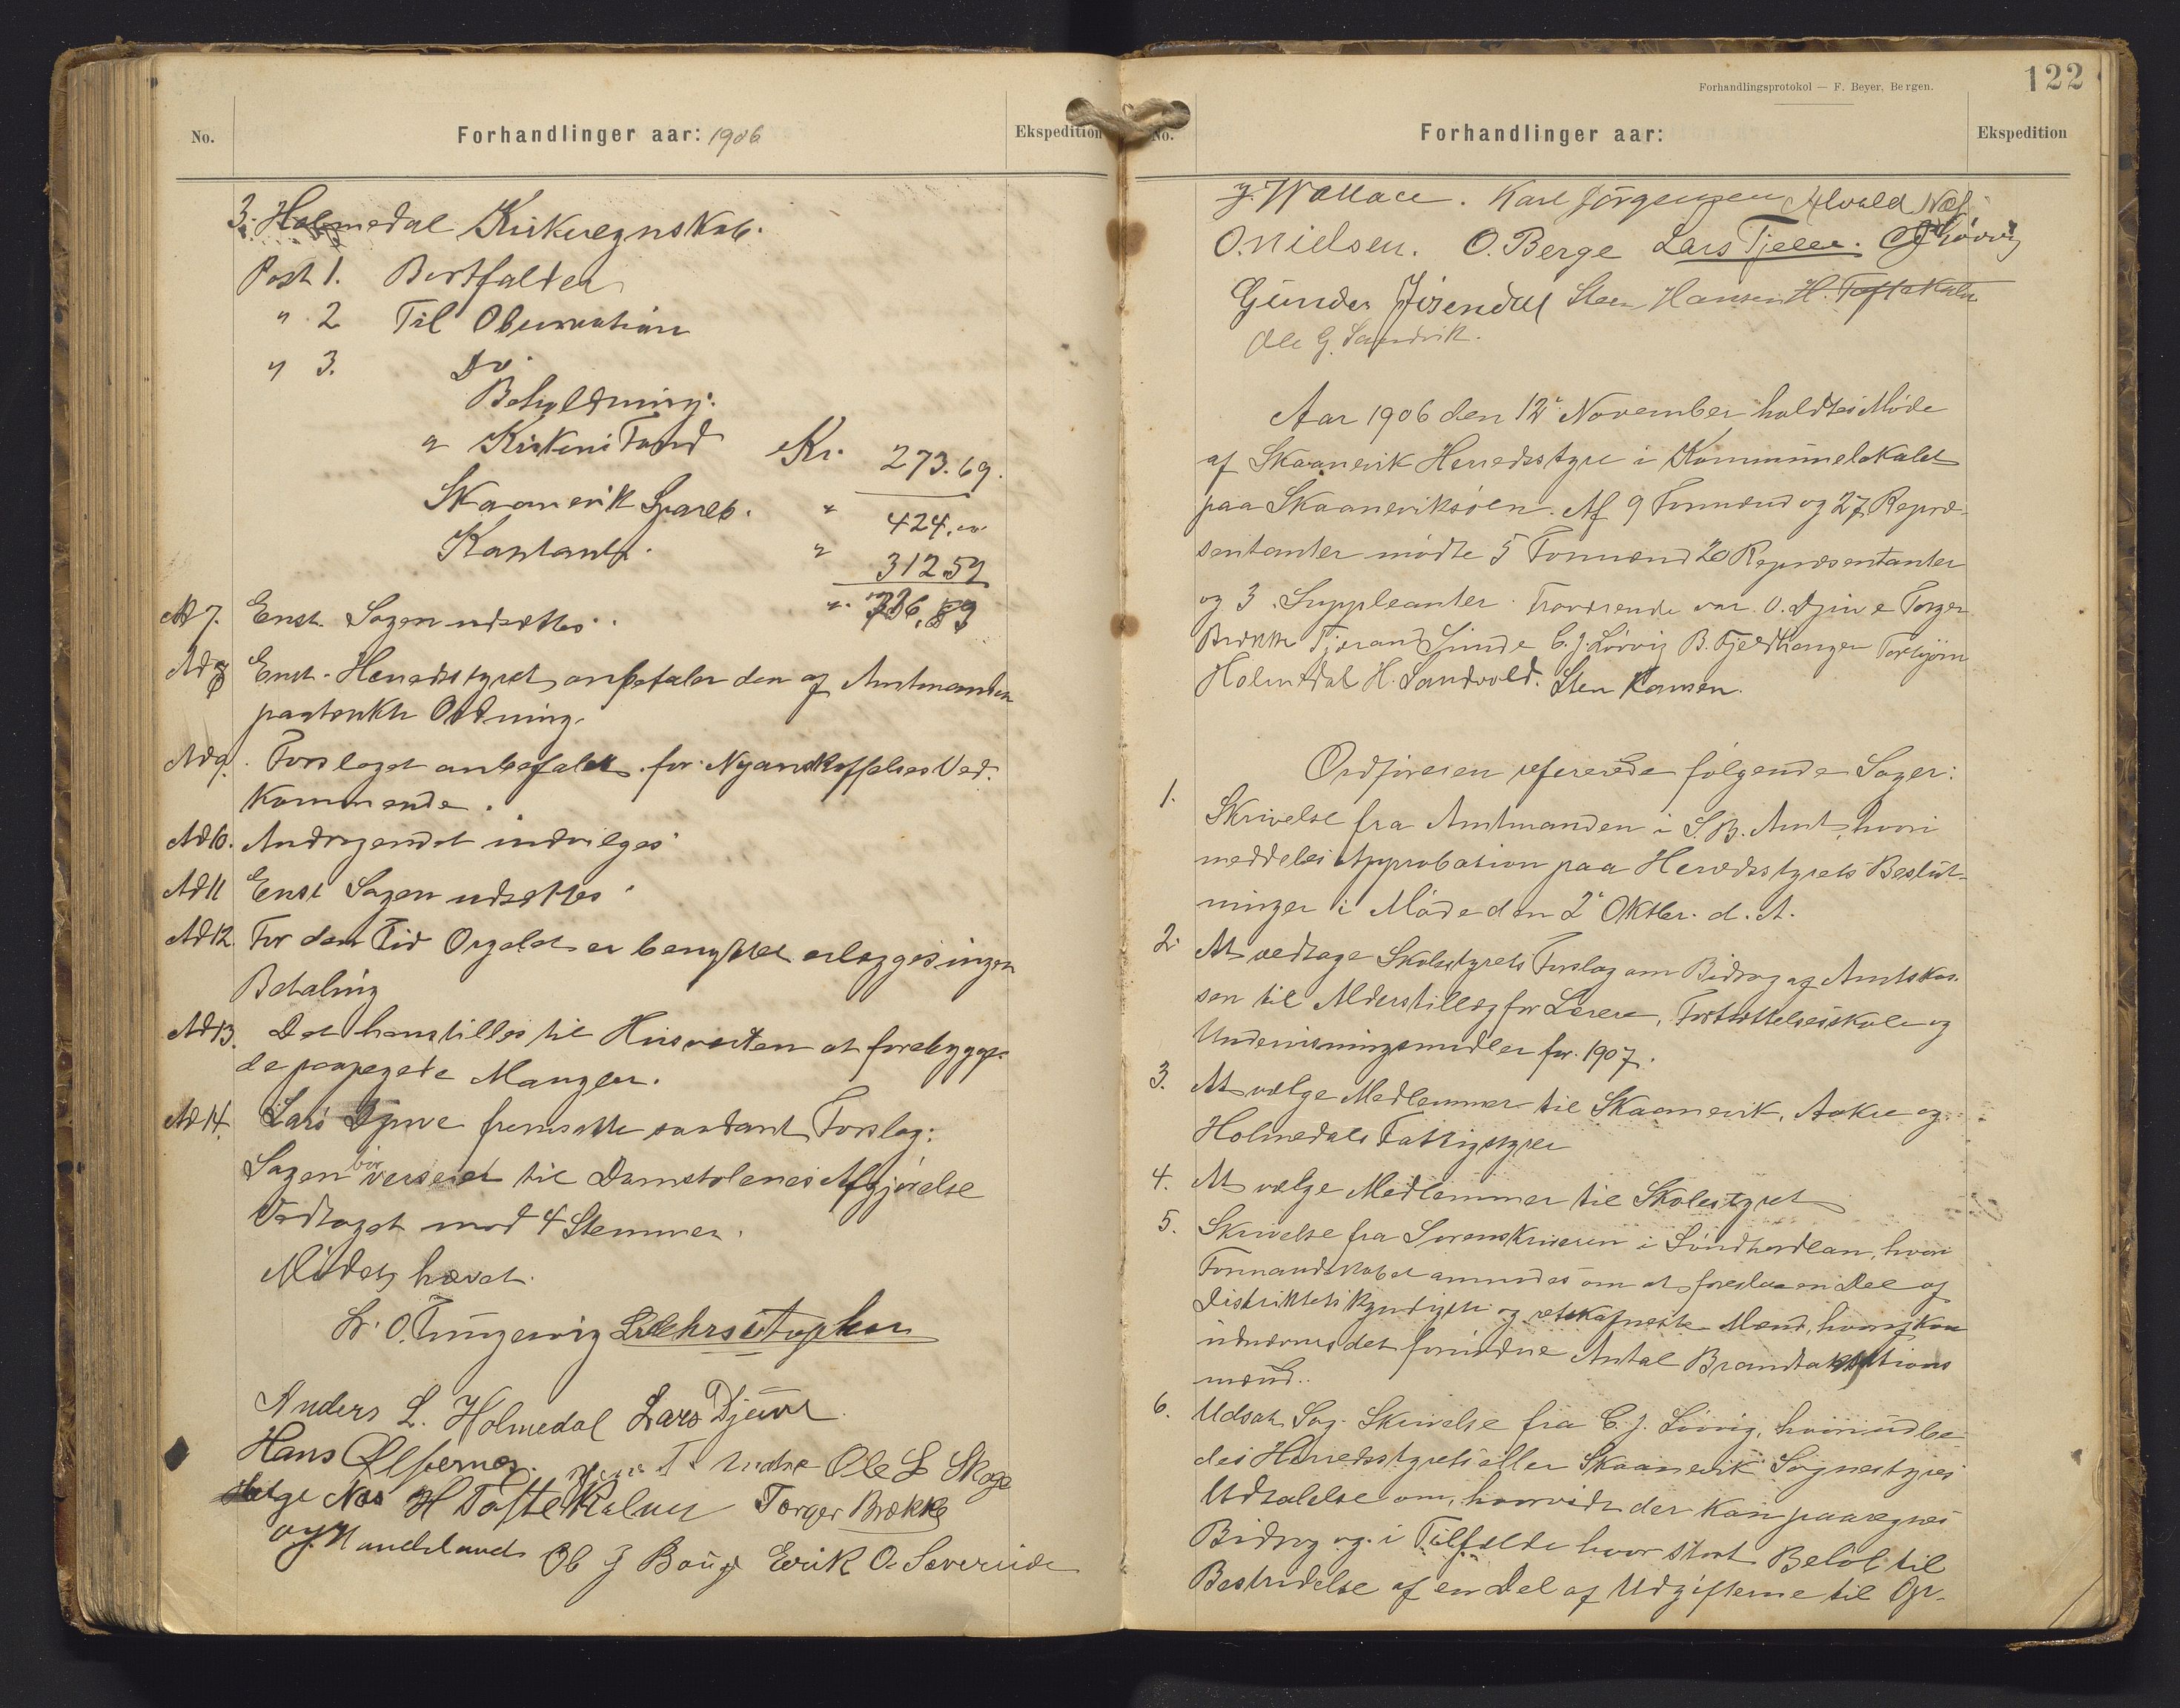 No.
Forhandlinger aar: 1906
Ekspedition
3. Holmedal Kirkeregnskab.
Post 1. Bortfalder
" 2 Til Observation
" 3. Do.
Beholdning:
a Kirkens Fond Kr. 273.69.
Skaanevik Spareb. " 424.00
Kontant. " 312.59
". 736,59
Ad 7. Enst. Sagen udsættes.
Ad 8 Enst. Herredsstyret anbefaler den af Amtmanden
paatænkte Ordning.
Ad 9. Forslaget anbefales for Nyanskaffelses Ved-
kommende.
Ad 10. Andragendet indvilges
Ad 11 Enst Sagen udsættes
Ad 12 For den Tid Orgelet er benyttet erlægges ingen
Betaling
Ad 13. Det henstilles til Husverten at forebygge
de paapegede Mangler.
Ad 14. Lars Djuve fremsatte saadant Forslag:
Sagen bør til Domstolenes Afgjørelse
Vedtaget mod 4 Stemmer.
Mødet hævet.
O. Tungesvig
Anders L. Holmedal Lars Djuve
Hans Ole L Skoge
Helge Næs H Toftekalven Torger Brække
Ob J Baug Eerik O. Severeide
Forhandlingsprotokol — F. Beyer, Bergen.
122
No.
Forhandlinger aar:
Ekspedition
J. Wallace. Karl Jörgensen Alvald Næs
O. Nielsen. O. Berge Lars Tjelle. CJ Løvvig
Gunder Fisendal Sten Hansen H. Toftekalv
Ole G. Sandvik.
Aar 1906 den 12' November holdtes Møde
af Skaanevik Herredsstyre i Kommunelokalet
paa Skaaneviksøen. Af 9 Formænd og 27 Repræ-
sentanter mødte 5 Formænd 20 Repræsentanter
og 3 Suppleanter. Fraværende var O. Djuve Torger
Brække Tjeran Gjinde C. J. Løvvig B. Fjeldhaugen Torbjørn
Holmedal H. Sandvold. Sten Hansen.
Ordføreren refererede følgende Sager:
1. Skrivelse fra Amtmanden i S. B. Amt, hvori
meddeles Approbation paa Herredsstyrets Beslut-
ninger i Møde den 2' Oktbr. d. A.
2. At vedtage Skolestyrets Forslag om Bidrag af Amtskas-
sen til Alderstillæg for Lærere, Fortsættelsesskole og
Undervisningsmidler for 1907.
3. At vælge Medlemmer til Skaanevik, Aakre og
Holmedals Fattigstyrer
4. At vælge Medlemmer til Skolestyret
5. Skrivelse fra Sorenskriveren i Søndhordland, hvori
Formandskabet anmodes om at foreslaa en Del af
Distriktets kyndigste og retskafneste Mænd, hvoraf kan
udnævnes det fornødne Antal Brandtakstations
mænd.
6. Udsat Sag. Skrivelse fra C. J. Løvvig, hvori udbe-
des Herredsstyrets eller Skaanevik Sognestyres
Udtalelse om, hvorvidt der kan paaregnes
Bidrag og i Tilfælde hvor stort Beløb til
Bestridelse af en Del af Udgifterne til Op-